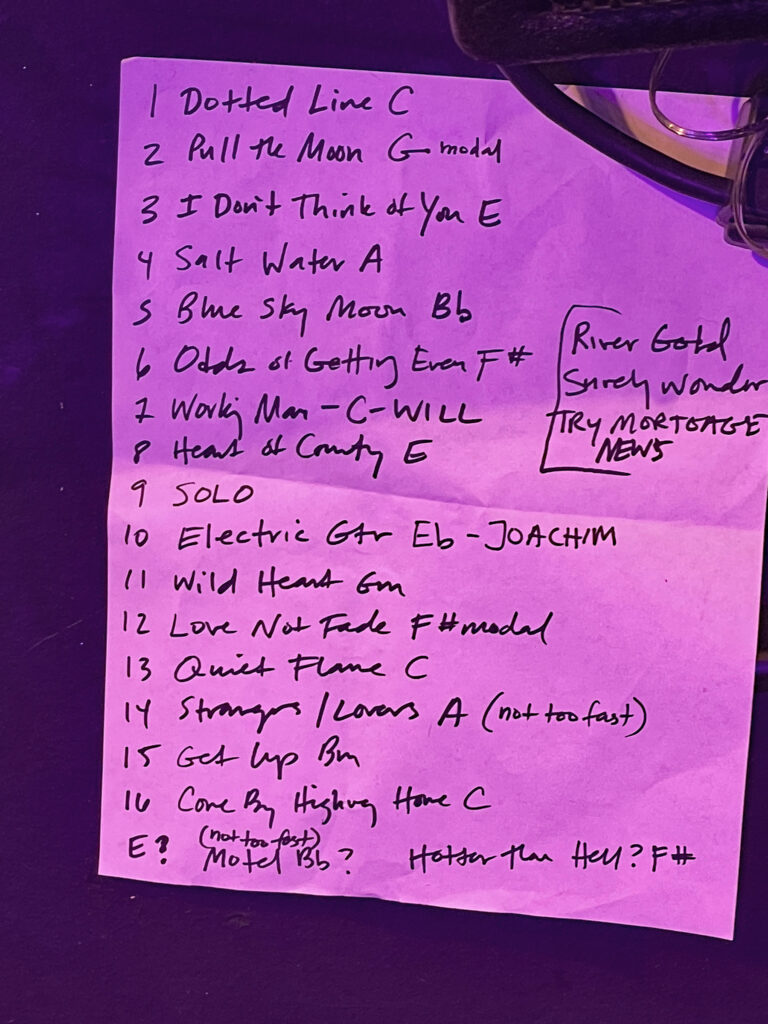 1 Dotted Line C
2 Pull the Moon G modal
3 I Don't Think of You E
4 Salt Water A
5 Blue Sky Moon Bb
6 Odds of Getting Even F#
7 Working Man - C - WILL
8 Heart of County E
9 SOLO
10 Electric Gtr Eb - JOACHIM
11 Wild Heart Gm
12 Love Not Fade F# modal
13 Quiet Flame C
14 Strangers / Lovers A (not too fast)
15 Get Up Bm
16 Come By Highway Home C
E? (not too fast)
Motel Bb? Hotter Than Hell? F#
River Gold
Surely Wonder
TRY MORTGAGE
NEWS